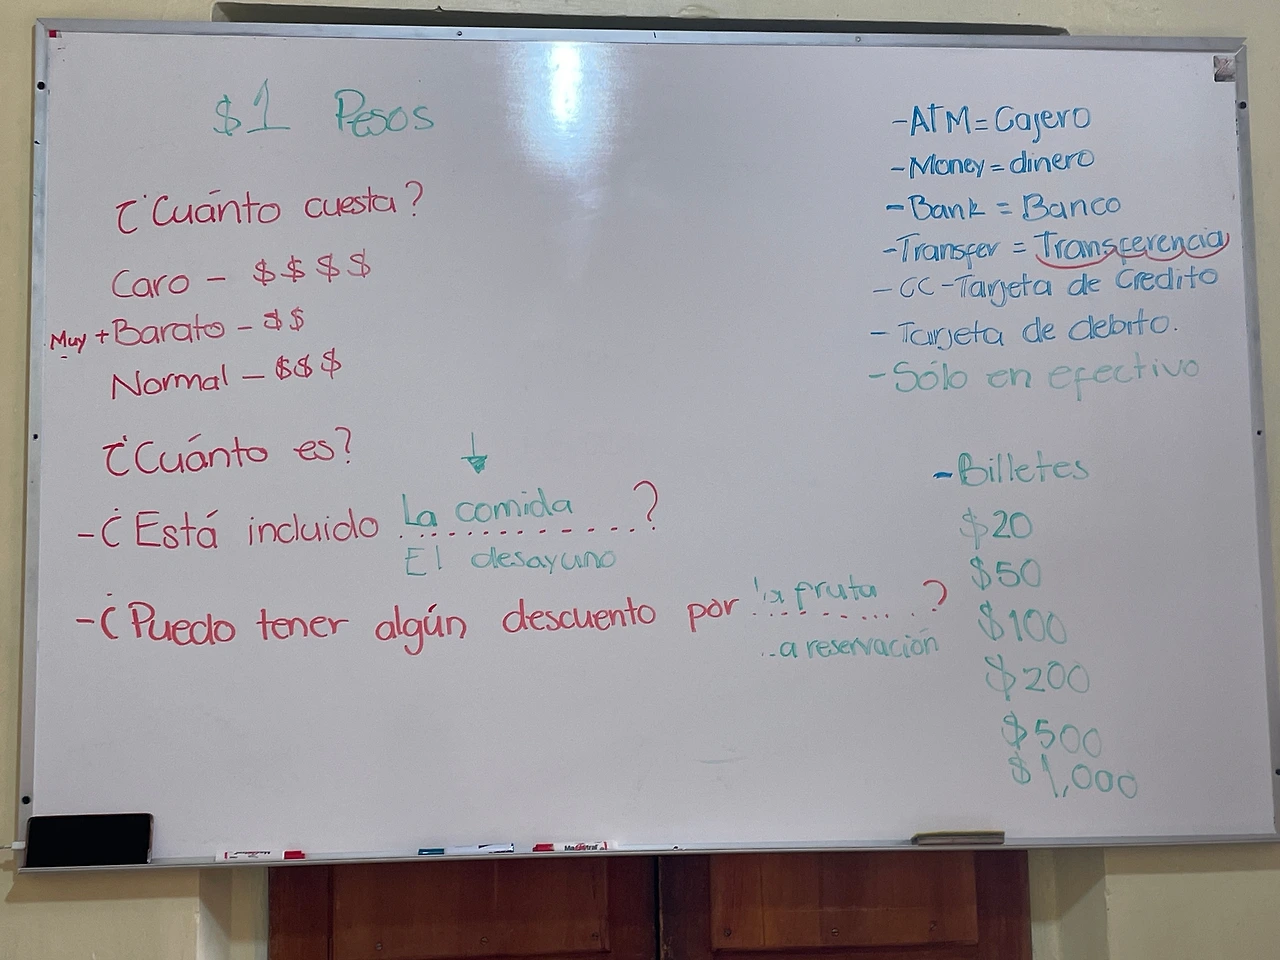 $1 Pesos
¿Cuánto cuesta?
Caro - $$$$
Muy + Barato - $$
Normal - $$$
¿Cuánto es?
- ¿Está incluido La comida ?
El desayuno
- ¿Puedo tener algún descuento por la fruta ?
a reservación
- ATM = Cajero
- Money = dinero
- Bank = Banco
- Transfer = Transferencia
- CC - Tarjeta de Credito
- Tarjeta de debito.
- Sólo en efectivo
- Billetes
$20
$50
$100
$200
$500
$1,000